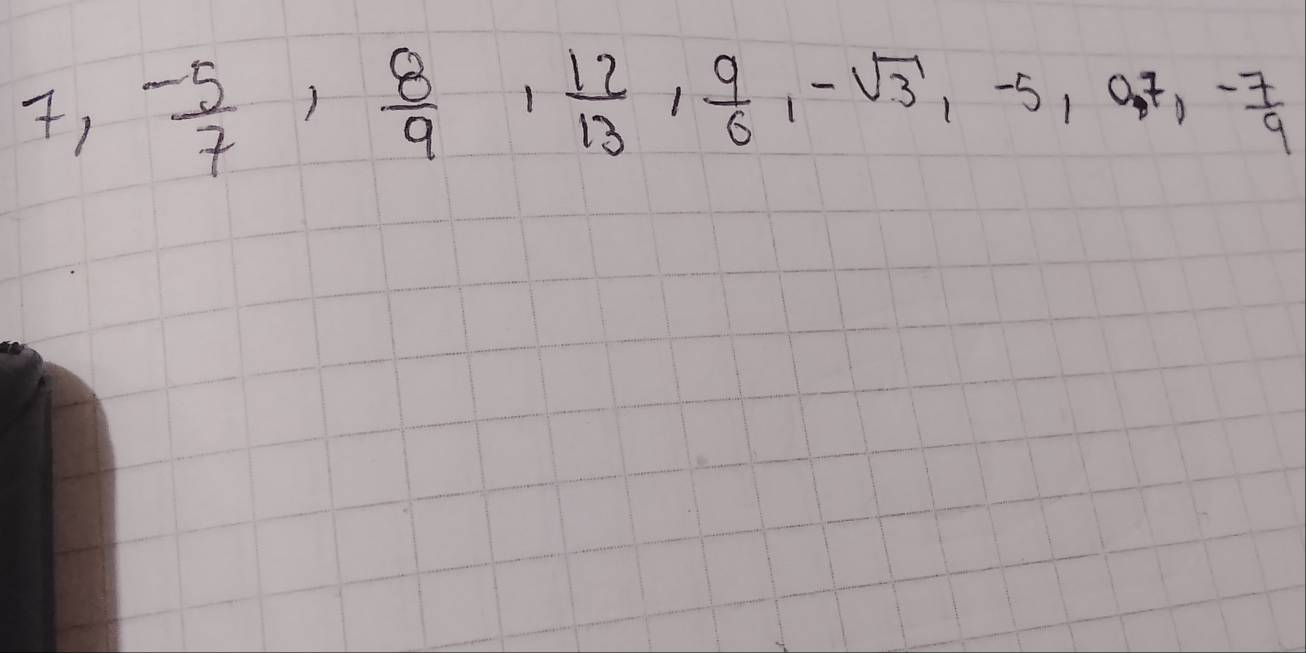 7, -5/7, 8/9, 12/13, 9/6, -√3, -5, 0,7, -7/9